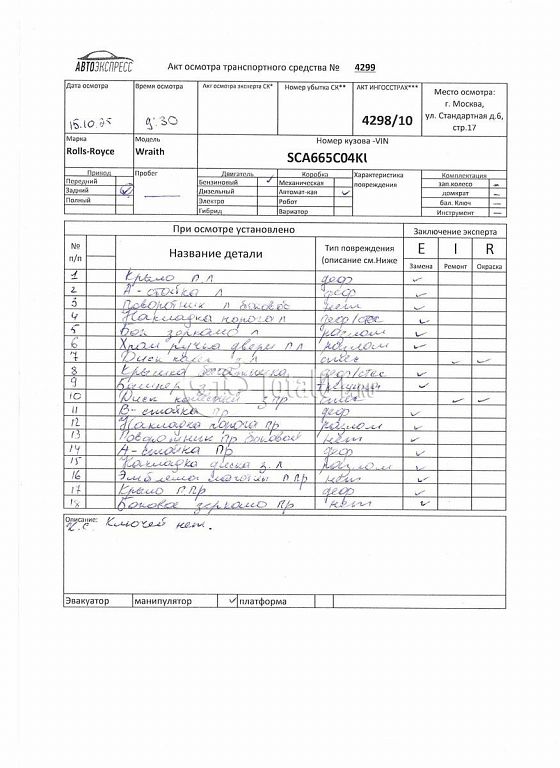 АВТОЭКСПРЕСС
Акт осмотра транспортного средства № 4299
Дата осмотра Время осмотра Акт осмотра эксперта СК* Номер убытка СК** АКТ ИНГОССТРАХ*** Место осмотра:
г. Москва,
ул. Стандартная д.6,
стр.17
15.10.25 9:30 4298/10
Марка Модель Номер кузова -VIN
Rolls-Royce Wraith SCA665C04KU
Привод Пробег Двигатель Коробка Характеристика повреждения Комплектация
Передний Бензиновый ✓ Механическая зап.колесо –
Задний ✓ — Дизельный Автомат-кая ✓ домкрат –
Полный Электро Робот бал. Ключ –
Гибрид Вариатор Инструмент –
При осмотре установлено Заключение эксперта
№ п/п Название детали Тип повреждения (описание см.Ниже E I R
Замена Ремонт Окраска
1 Крыло п.л деф ✓
2 А-стойка л деф ✓
3 Поворотник л боковой нет ✓
4 Накладка порога л деф/стес ✓
5 Бок зеркало л разлом ✓
6 Хром ручка двери п.л разлом ✓
7 Диск колес з.л стес ✓ ✓
8 Крышка деф/стес ✓
9 Бампер з. ✓
10 Диск колесный з.пр стес ✓ ✓
11 В-стойка пр деф ✓
12 Накладка порога пр разлом ✓
13 Поворотник пр боковой нет ✓
14 А-стойка пр деф ✓
15 Накладка диска з.л разлом ✓
16 Эмблема п.пр нет ✓
17 Крыло п.пр деф ✓
18 Боковое зеркало пр нет ✓
Описание:
Ключей нет.
Эвакуатор манипулятор ✓ платформа